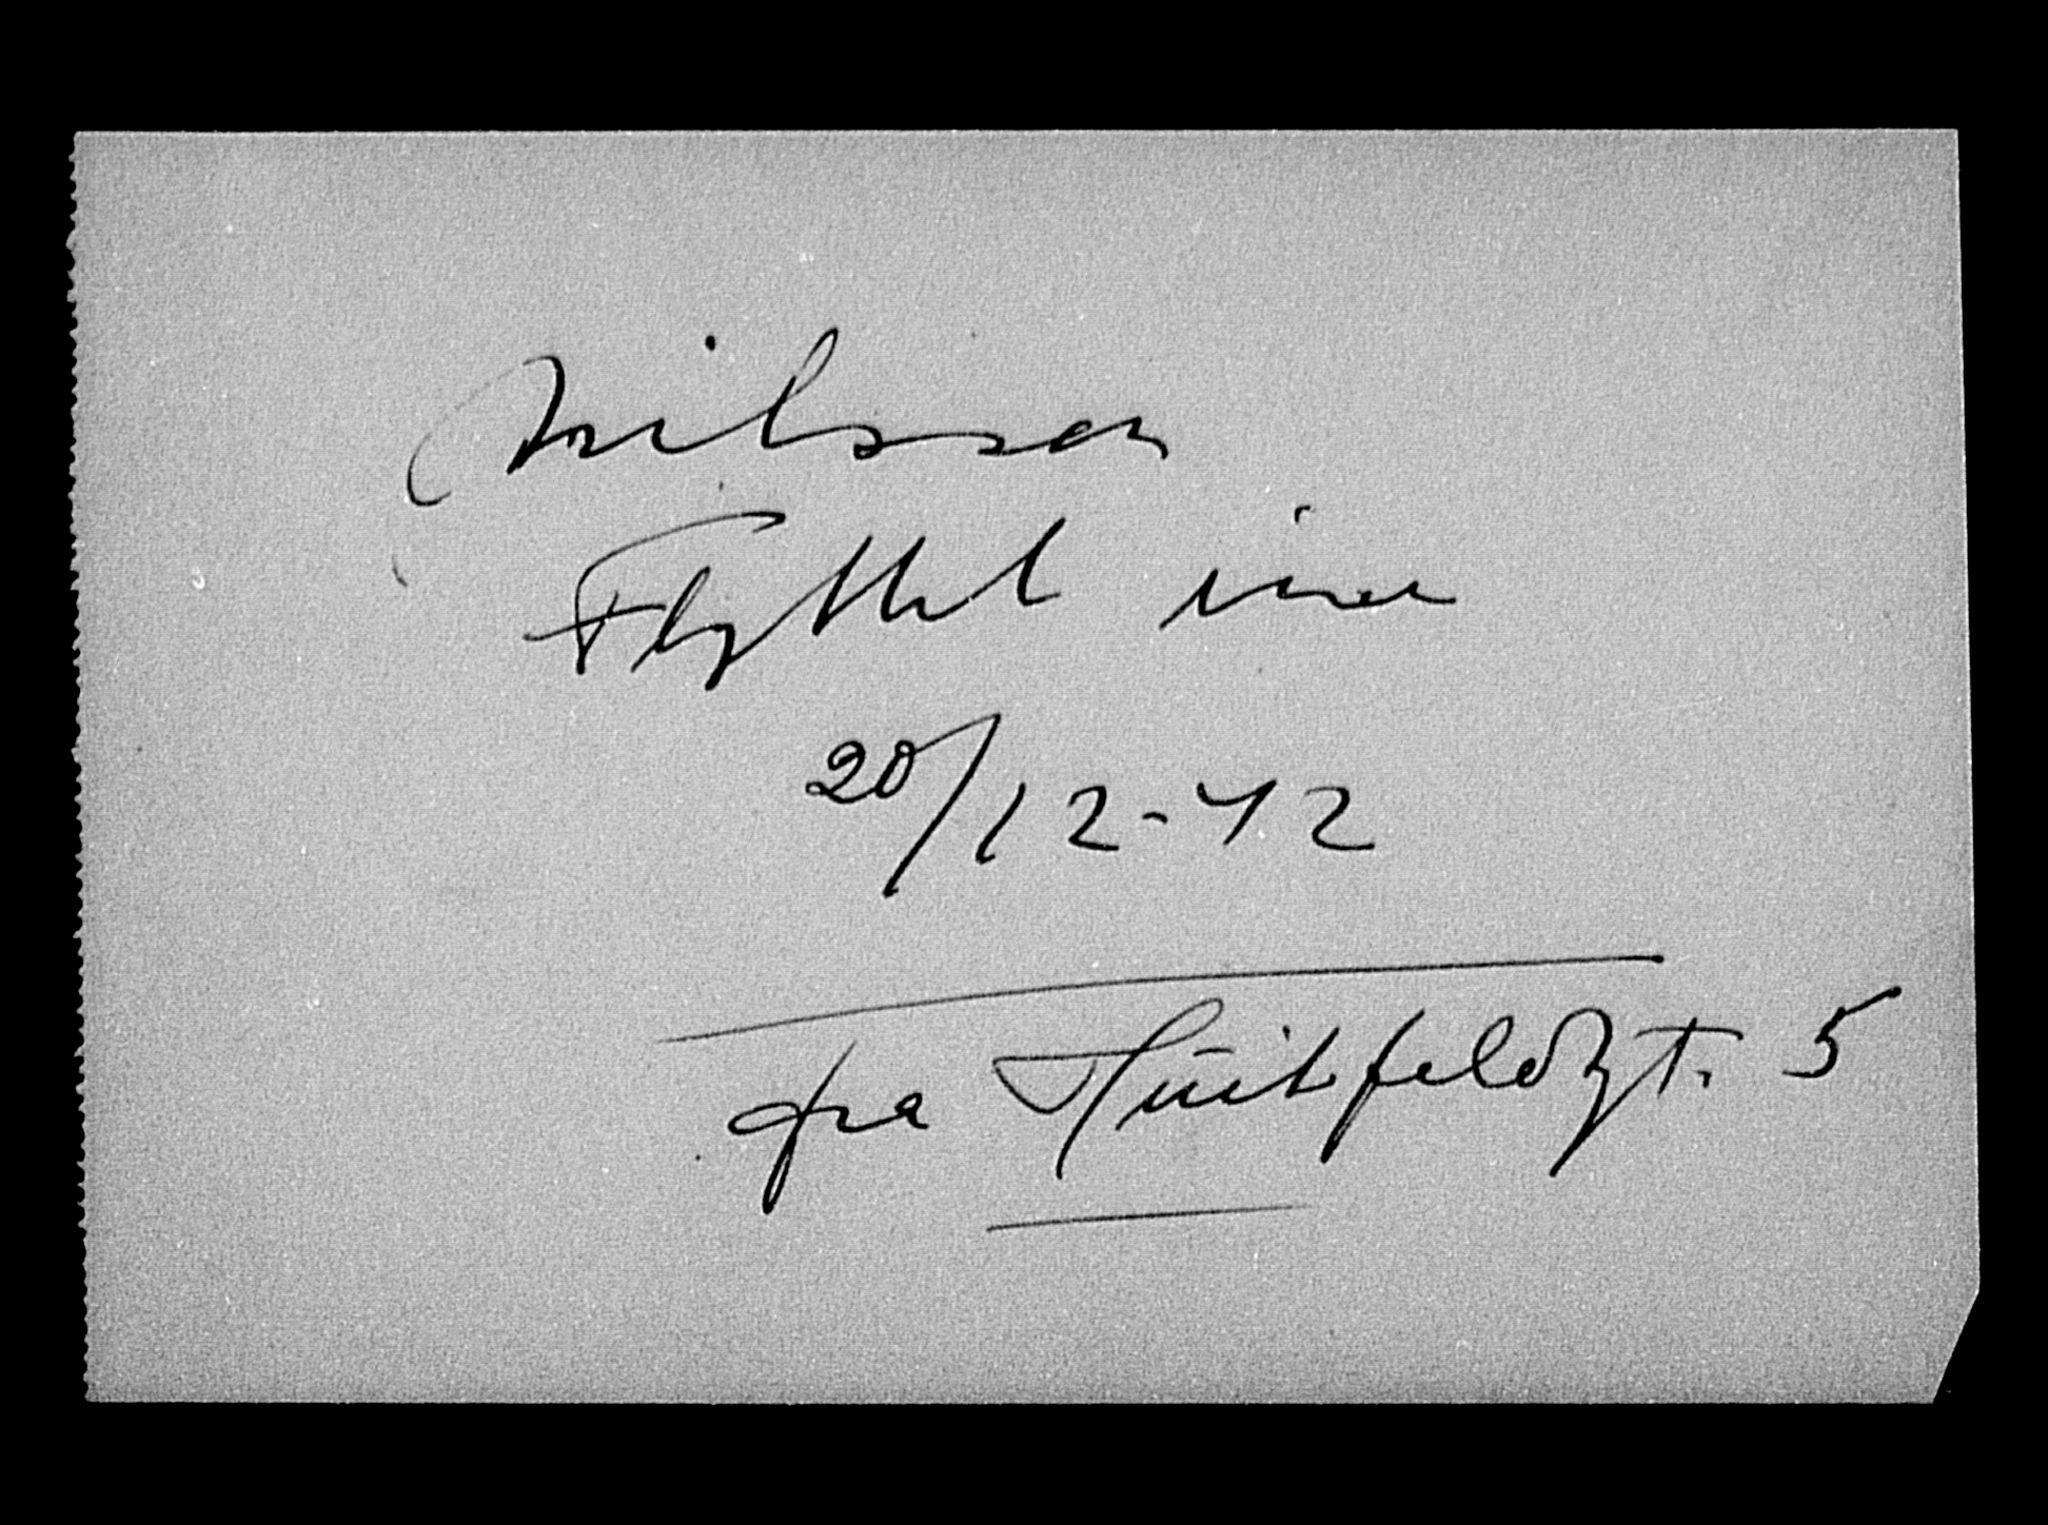 Nilssen
Flyttet inn
20/12-42
fra Huitfeldtsgt. 5